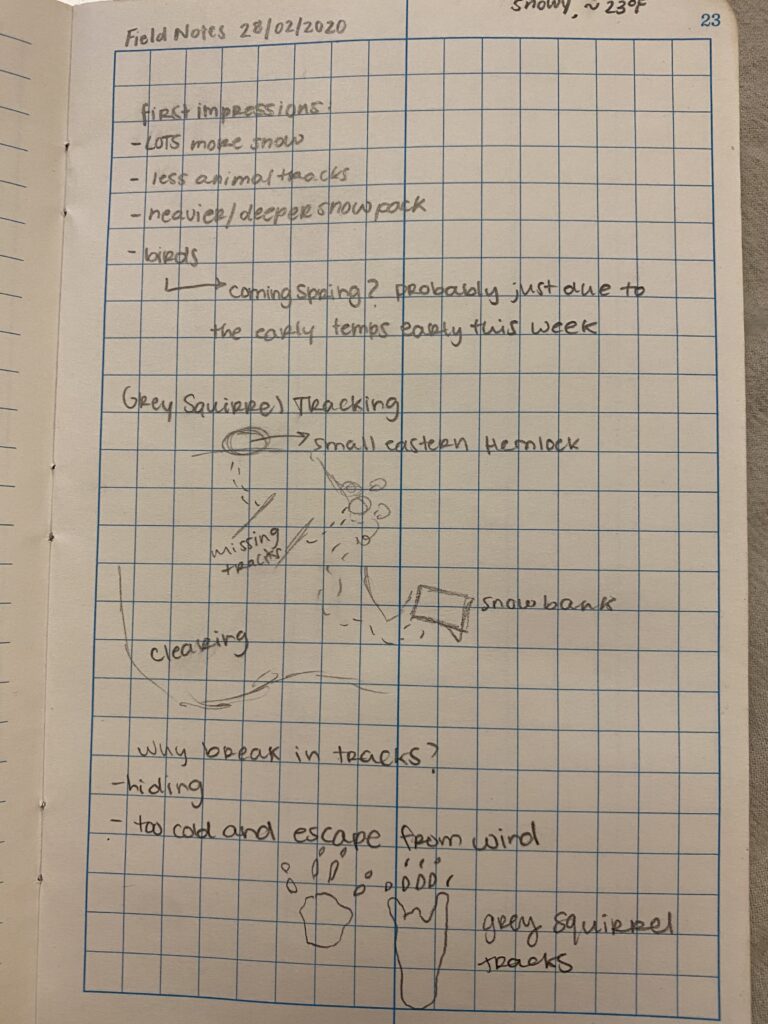 snowy, ~ 23°F
23
Field Notes 28/02/2020
first impressions:
- LOTS more snow
- less animal tracks
- heavier/deeper snow pack
- birds
coming spring? probably just due to
the early temps early this week
Grey Squirrel Tracking
small eastern Hemlock
missing
tracks
snow bank
clearing
why break in tracks?
- hiding
- too cold and escape from wind
grey squirrel
tracks